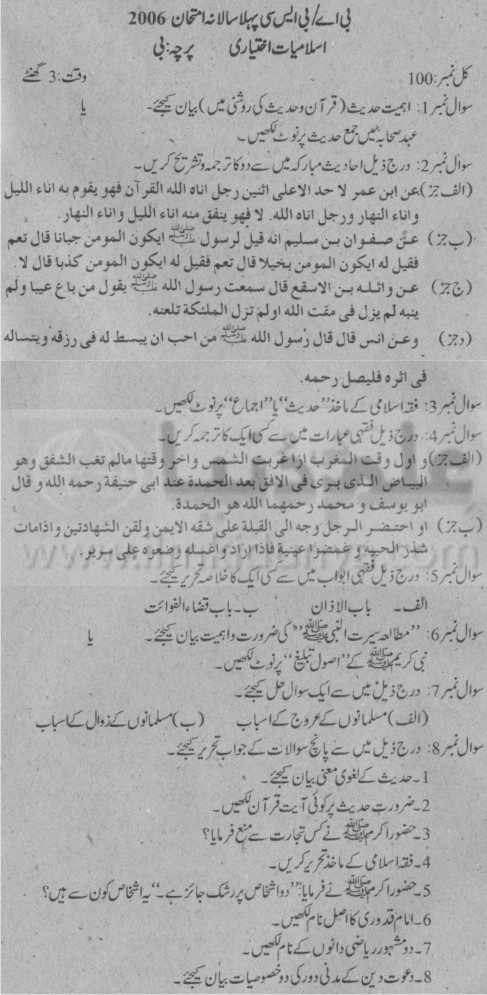 بی اے/بی ایس سی پہلا سالانہ امتحان 2006
اسلامیات اختیاری پرچہ: بی
کل نمبر: 100 وقت: 3 گھنٹے
سوال نمبر 1: اہمیت حدیث (قرآن و حدیث کی روشنی میں) بیان کیجئے۔ یا
عہد صحابہ میں جمع حدیث پر نوٹ لکھیں۔
سوال نمبر 2: درج ذیل احادیث مبارکہ میں سے دو کا ترجمہ و تشریح کریں۔
(الف جز) عن ابن عمر لا حد الاعلی اثنین رجل اتاہ اللہ القرآن فھو یقوم بہ اناء اللیل
واناء النھار ورجل اتاہ اللہ. لا فھو ینفق منہ اناء اللیل واناء النھار.
(ب جز) عن صفوان بن سلیم انہ قیل لرسول ﷺ ایکون المومن جبانا قال نعم
فقیل لہ ایکون المومن بخیلا قال نعم فقیل لہ ایکون المومن کذبا قال لا.
(ج جز) عن واثلہ بن الاسقع قال سمعت رسول اللہ ﷺ یقول من باع عیبا ولم
ینبہ لم یزل فی مقت اللہ اولم تزل الملئکة تلعنہ.
(د جز) وعن انس قال قال رسول اللہ ﷺ من احب ان یبسط لہ فی رزقہ وینسالہ
فی اثرہ فلیصل رحمہ.
سوال نمبر 3: فقہ اسلامی کے ماخذ "حدیث" یا "اجماع" پر نوٹ لکھیں۔
سوال نمبر 4: درج ذیل فقہی عبارات میں سے کسی ایک کا ترجمہ کریں۔
(الف جز) و اول وقت المغرب ازا غربت الشمس واخر وقتھا مالم تغب الشفق وھو
البیاض الذی یری فی الافق بعد الحمدة عند ابی حنیفة رحمہ اللہ و قال
ابو یوسف و محمد رحمھما اللہ ھو الحمدة.
(ب جز) او احتضر الرجل وجہ الی القبلة علی شقہ الایمن ولقن الشھادتین واذامات
شدر الحیہ و غمضوا عینیة فاذا اراد واغسلہ وضعرہ علی سریر.
سوال نمبر 5: درج ذیل فقہی ابواب میں سے کسی ایک کا خلاصہ تحریر کیجئے۔
الف۔ باب الاذان ب۔ باب قضاء الفوائت
سوال نمبر 6: "مطالعہ سیرت النبی ﷺ" کی ضرورت و اہمیت بیان کیجئے۔ یا
نبی کریم ﷺ کے "اصول تبلیغ" پر نوٹ لکھیں۔
سوال نمبر 7: درج ذیل میں سے ایک سوال حل کیجئے۔
(الف) مسلمانوں کے عروج کے اسباب (ب) مسلمانوں کے زوال کے اسباب
سوال نمبر 8: درج ذیل میں سے پانچ سوالات کے جواب تحریر کیجئے۔
1۔ حدیث کے لغوی معنی بیان کیجئے۔
2۔ ضرورت حدیث پر کوئی آیت قرآن لکھیں۔
3۔ حضور اکرم ﷺ نے کس تجارت سے منع فرمایا؟
4۔ فقہ اسلامی کے ماخذ تحریر کریں۔
5۔ حضور اکرم ﷺ نے فرمایا: "دو اشخاص پر رشک جائز ہے۔" یہ اشخاص کون سے ہیں؟
6۔ امام قدوری کا اصل نام لکھیں۔
7۔ دو مشہور ریاضی دانوں کے نام لکھیں۔
8۔ دعوت دین کے مدنی دور کی دو خصوصیات بیان کیجئے۔